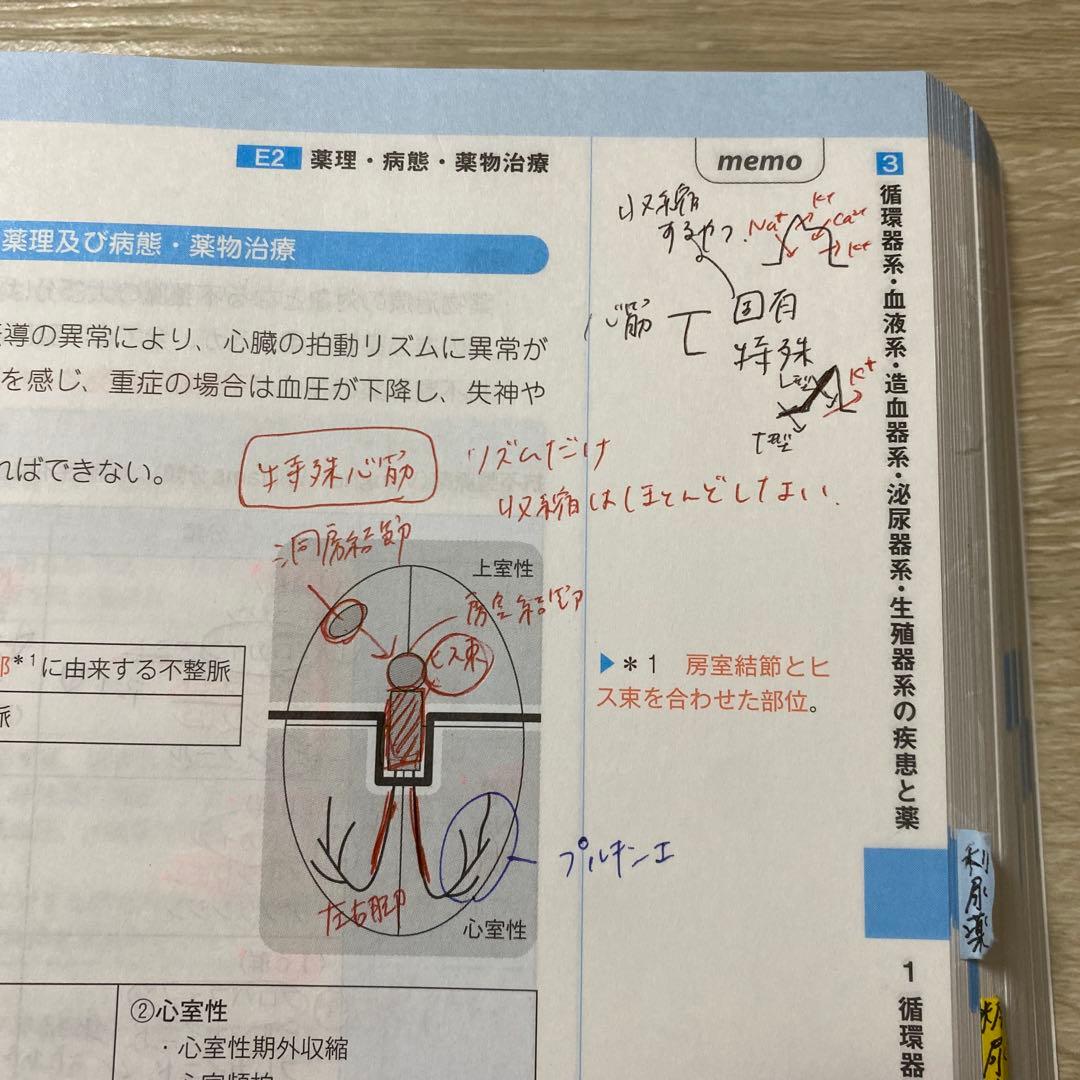 E2 薬理・病態・薬物治療
memo
3 循環器系・血液系・造血器系・泌尿器系・生殖器系の疾患と薬
薬理及び病態・薬物治療
収縮
するやつ.
Na⁺
K⁺
Ca²⁺
K⁺
心筋
固有
特殊
L型
K⁺
T型
導の異常により、心臓の拍動リズムに異常が
を感じ、重症の場合は血圧が下降し、失神や
ればできない。
特殊心筋
リズムだけ
収縮はほとんどしない.
洞房結節
上室性
房室結節
ヒス束
部*1に由来する不整脈
脈
▶*1 房室結節とヒ
ス束を合わせた部位。
プルキンエ
左右脚
心室性
②心室性
・心室性期外収縮
・心室頻拍
利尿薬
1 循環器
糖尿